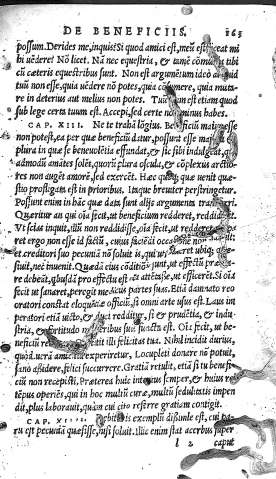 DE BENEFICIIS. 163
possum. Derides me, inquis: Si quod amici est, meū est, liceat mi
hi uēdere? Nō licet. Nā nec equestria, & tamē cōmunia tibi
cū cæteris equestribus sunt. Non est argumētum ideo aliquid
tuū non esse, quia uēdere nō potes, quia cōsumere, quia muta-
re in deterius aut melius non potes. Tuū enim est etiam quod
sub lege certa tuum est. Accepi, sed certe nō minus habes.
CAP. XIII. Ne te trahā lōgius. Beneficiū maius esse
non potest, ea per quæ beneficiū datur, possunt esse maiora &
plura in quæ se beneuolētia effundat, & sic sibi indulgeat, quē-
admodū amātes solēt, quorū plura oscula, & cōplexus arctio-
res non augēt amorē, sed exercēt. Hæc quoq; quæ uenit quæ-
stio profligata est in prioribus. Itaque breuiter perstringetur.
Possunt enim in hāc quæ data sunt alijs argumenta transferri.
Quæritur an qui oīa fecit, ut beneficium redderet, reddiderit.
Vt scias inquit, illū non reddidisse, oīa fecit, ut redderet. Appa
ret ergo non esse id factū, cuius faciēdi occasionē
et creditori suo pecuniā nō soluit is, qui ut
fiuit, nec inuenit. Quædā eius cōditiōis sunt, ut effectū præsta-
re debeāt, quibusdā pro effectu est oīa attētasse, ut efficerēt. Si oīa
fecit ut sanaret, peregit medicus partes suas. Etiā damnato reo
oratori constat eloquētiæ officiū, si omni arte usus est. Laus im
peratori etiā uicto, & duci redditur, si & prudētia, & indu-
stria, & fortitudo muneribus suis functa est. Oīa fecit, ut be-
neficiū redderet, obstitit illi felicitas tua. Nihil incidit durius,
quod uerā amicitiā experiretur. Locupleti donare nō potuit,
sano assidere, felici succurrere. Gratiā retulit, etiā si tu benefi-
ciū non recepisti. Præterea huic intentus semper, & huius rei
tēpus operiēs, qui in hoc multū curæ, multū sedulitatis impen
dit, plus laborauit, quàm cui cito referre gratiam contigit.
CAP. XIIII. Debitoris exemplū dissimile est, cui pa-
rū est pecuniā quæsisse, nisi soluit. Illic enim stat acerbus super
l 2 caput